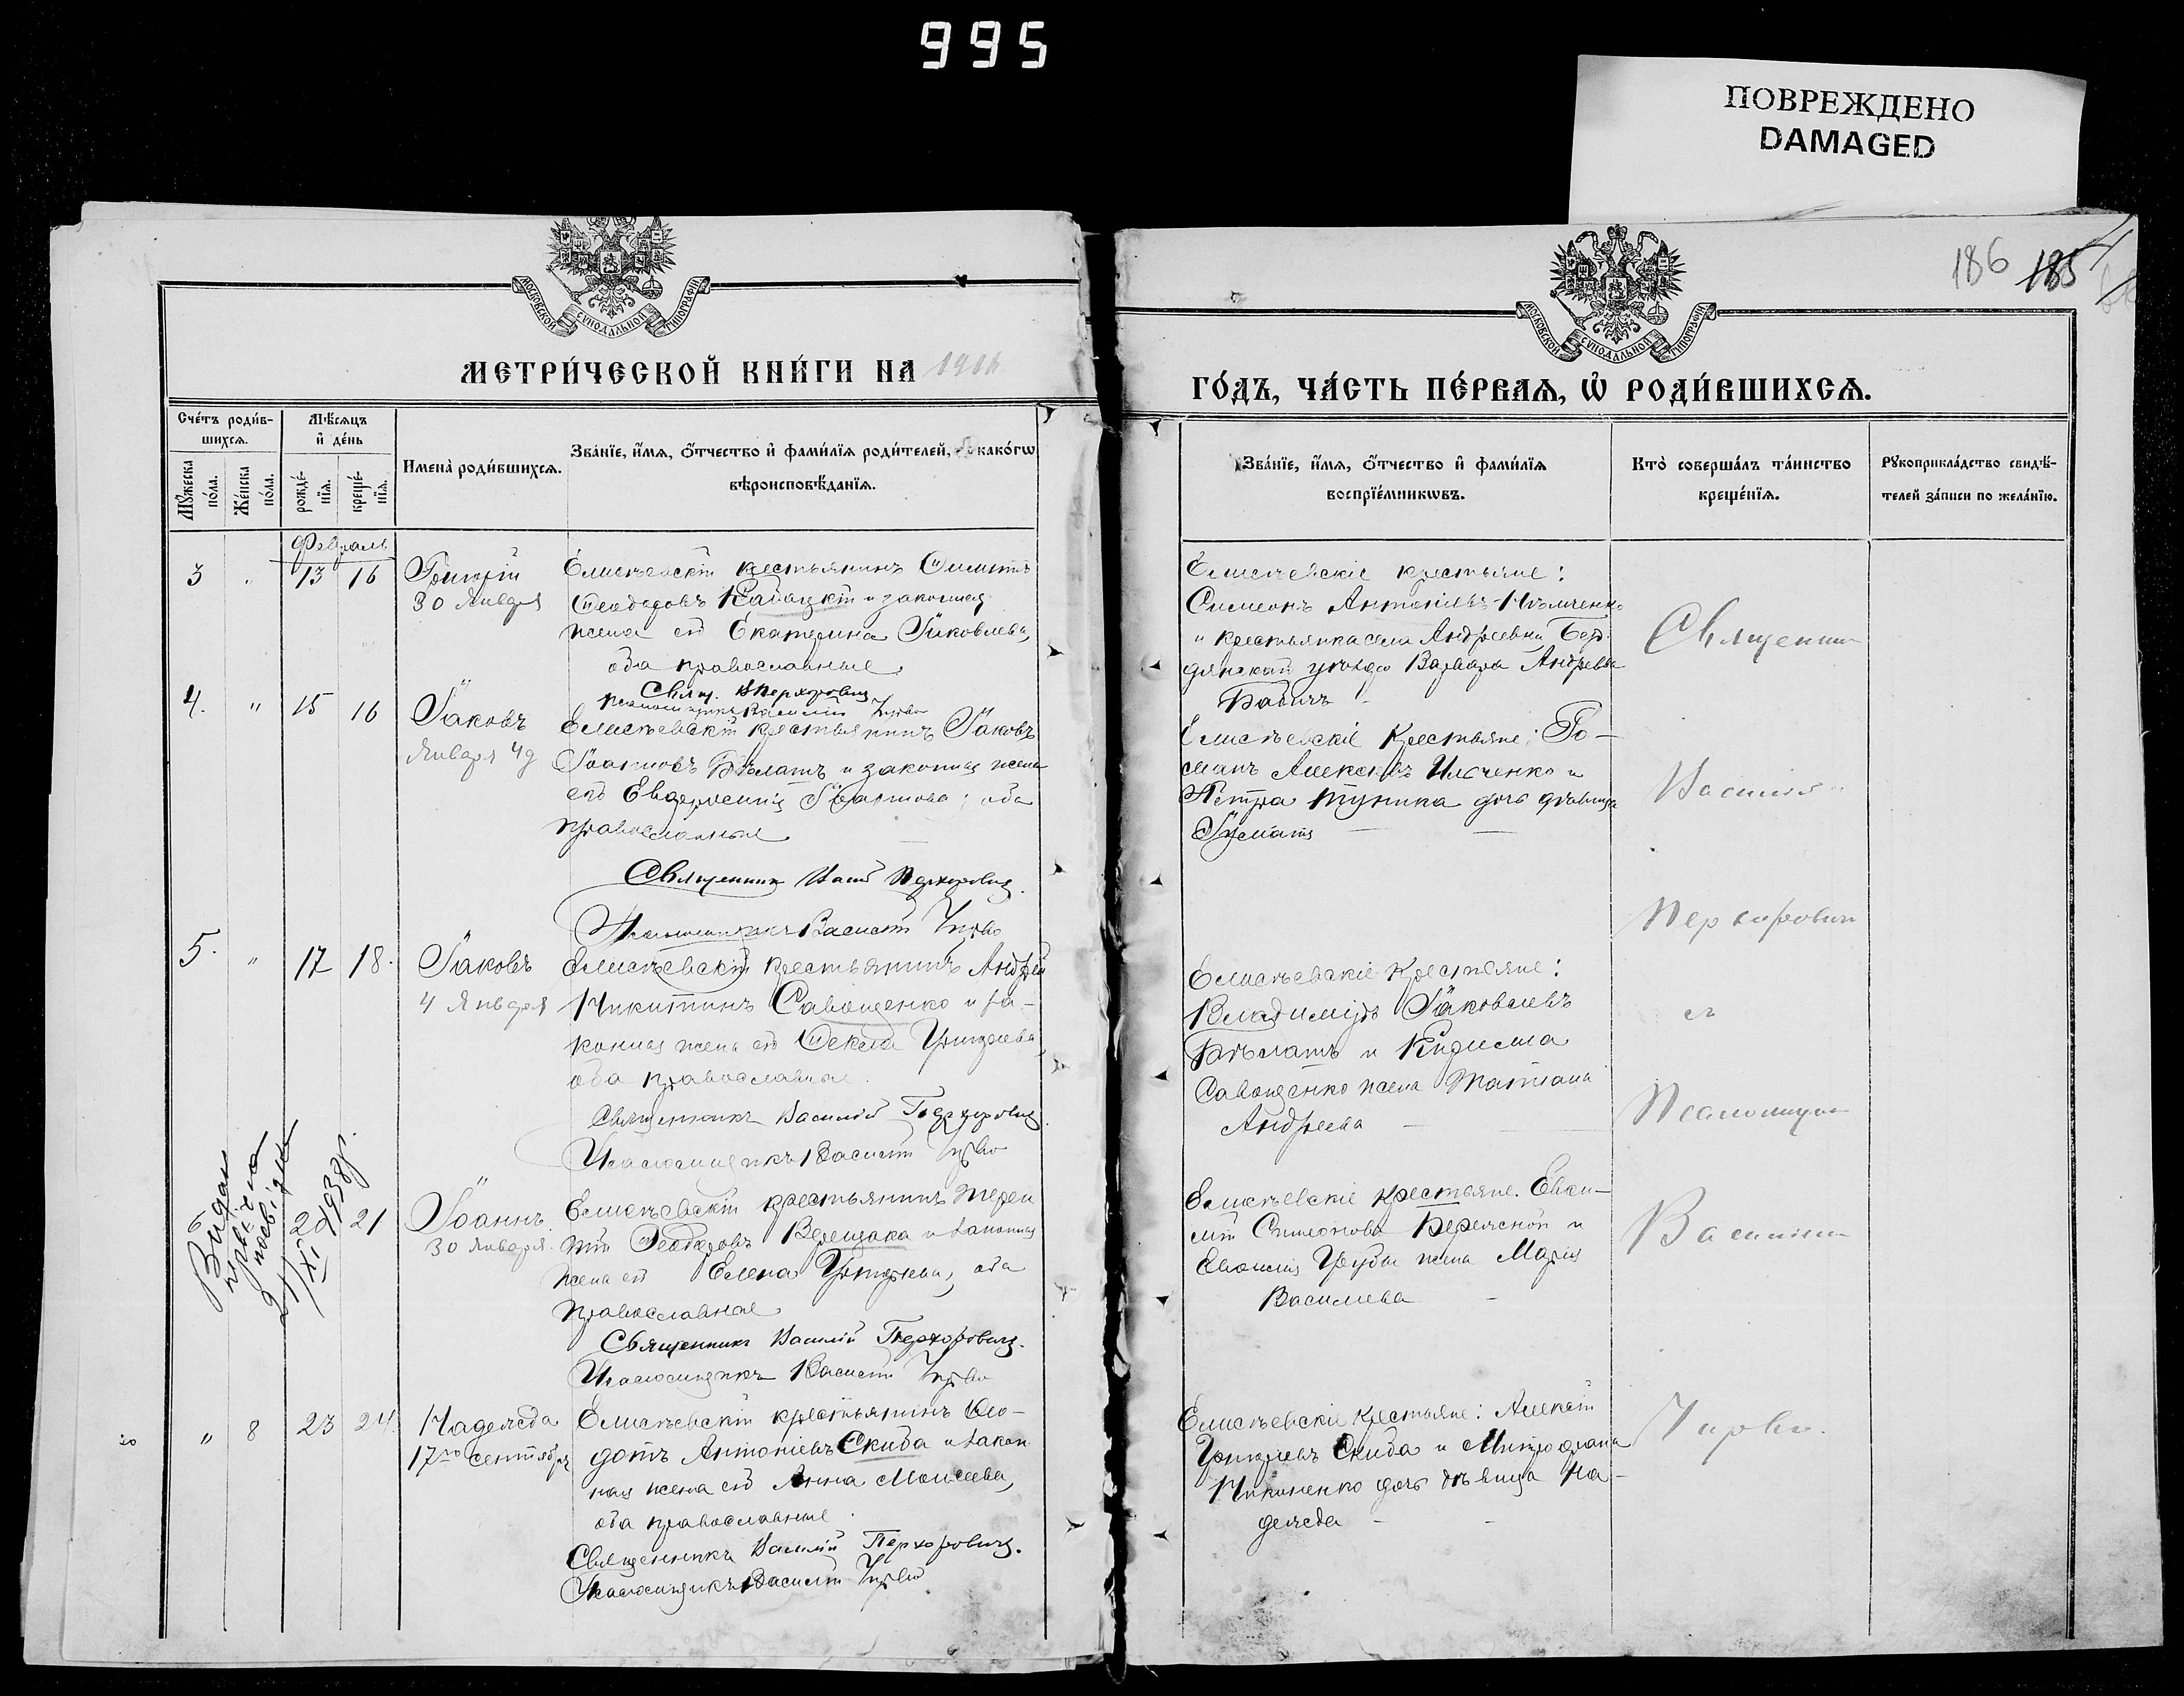 995
ПОВРЕЖДЕНО
DAMAGED
186 185
МОСКОВСКОЙ СѴНОДАЛЬНОЙ ТИПОГРАФІИ
МОСКОВСКОЙ СѴНОДАЛЬНОЙ ТИПОГРАФІИ
МЕТРИ́ЧЕСКОЙ КНИ́ГИ НА
ГО́ДЪ, ЧА́СТЬ ПЕ́РВАѦ, Ѡ҆ РОДИ́ВШИХСѦ.
Сче́тъ роди́в-
шихсѧ.
Мꙋ́жеска
по́ла.
Же́нска
по́ла.
Мѣ́сѧцъ
и҆ де́нь
рожде́-
нїѧ.
креще́-
нїѧ.
Имена̀ роди́вшихсѧ.
Зва́нїе, и҆́мѧ, ѻ҆́тчество и҆ фами́лїѧ роди́телей, како́гѡ
вѣроисповѣ́данїѧ.
Зва́нїе, и҆́мѧ, ѻ҆́тчество и҆ фами́лїѧ
воспрїе́мникѡвъ.
Кто̀ соверша́лъ та́инство
креще́нїѧ.
Рꙋкоприкла́дство свидѣ́-
телей за́писи по жела́нїю.
Февраль
3 13 16
30 Января
Елисѣевскій крестьянинъ
Ѳеодоровъ и законная
жена его Екатерина Іаковлева,
оба православные
Свящ. В Перхорович
Елисѣевскіе крестьяне:
Симеонъ Антоніевъ
и крестьянка села Андреевки Бер-
дянскаго уѣзда Варвара Андреева
Бабичъ
Священник
4. " 15 16
Іаковъ
Января 4 д
Елисѣевскій крестьянинъ Іаковъ
Іоанновъ Бѣлашъ и законная жена
его Іоаннова; оба
православные
Священник Васил Перхорович.
Псаломщикъ Василій
Елисѣевскіе Крестьяне: Ро-
манъ Алексѣевъ Ильченко и
Петра дочь дѣвица
Василій
Перхорович
5. " 17 18.
Іаковъ
4 Января
Елисѣевскій крестьянинъ Андрей
Никитинъ Савощенко и за-
конная жена его Ѳекла Григорьева
оба православные.
Священникъ Василій Перхорович.
Псаломщикъ Василій
Елисѣевскіе Крестьяне:
Владиміръ Іаковлевъ
Бѣлашъ и Кирилла
Савощенко жена Татіана
Андреева
съ
Псаломщик
6 20 21
Видан
1938 р.
Іоаннъ
30 Января.
Елисѣевскій крестьянинъ Терен
тій Ѳеодоровъ Верещака и законная
жена его Елена Григорьева, оба
православные
Священник Василій Перхорович.
Псаломщикъ Василій
Елисѣевскіе Крестьяне. Евѳи-
мій Симеоновъ Бережной и
жена Марія
Василиева
Василием
" 8 23 24.
Надежда
17го Сентября
Елисѣевскій крестьянинъ Ѳео-
дотъ Антоніевъ Скиба и закон
ная жена его Анна Моисеева,
оба православные
Священникъ Василій Перхорович.
Псаломщикъ Василій
Елисѣевскіе Крестьяне: Алексій
Григорьевъ Скиба и Митрофана
Никоненко дочь дѣвица На-
дежда